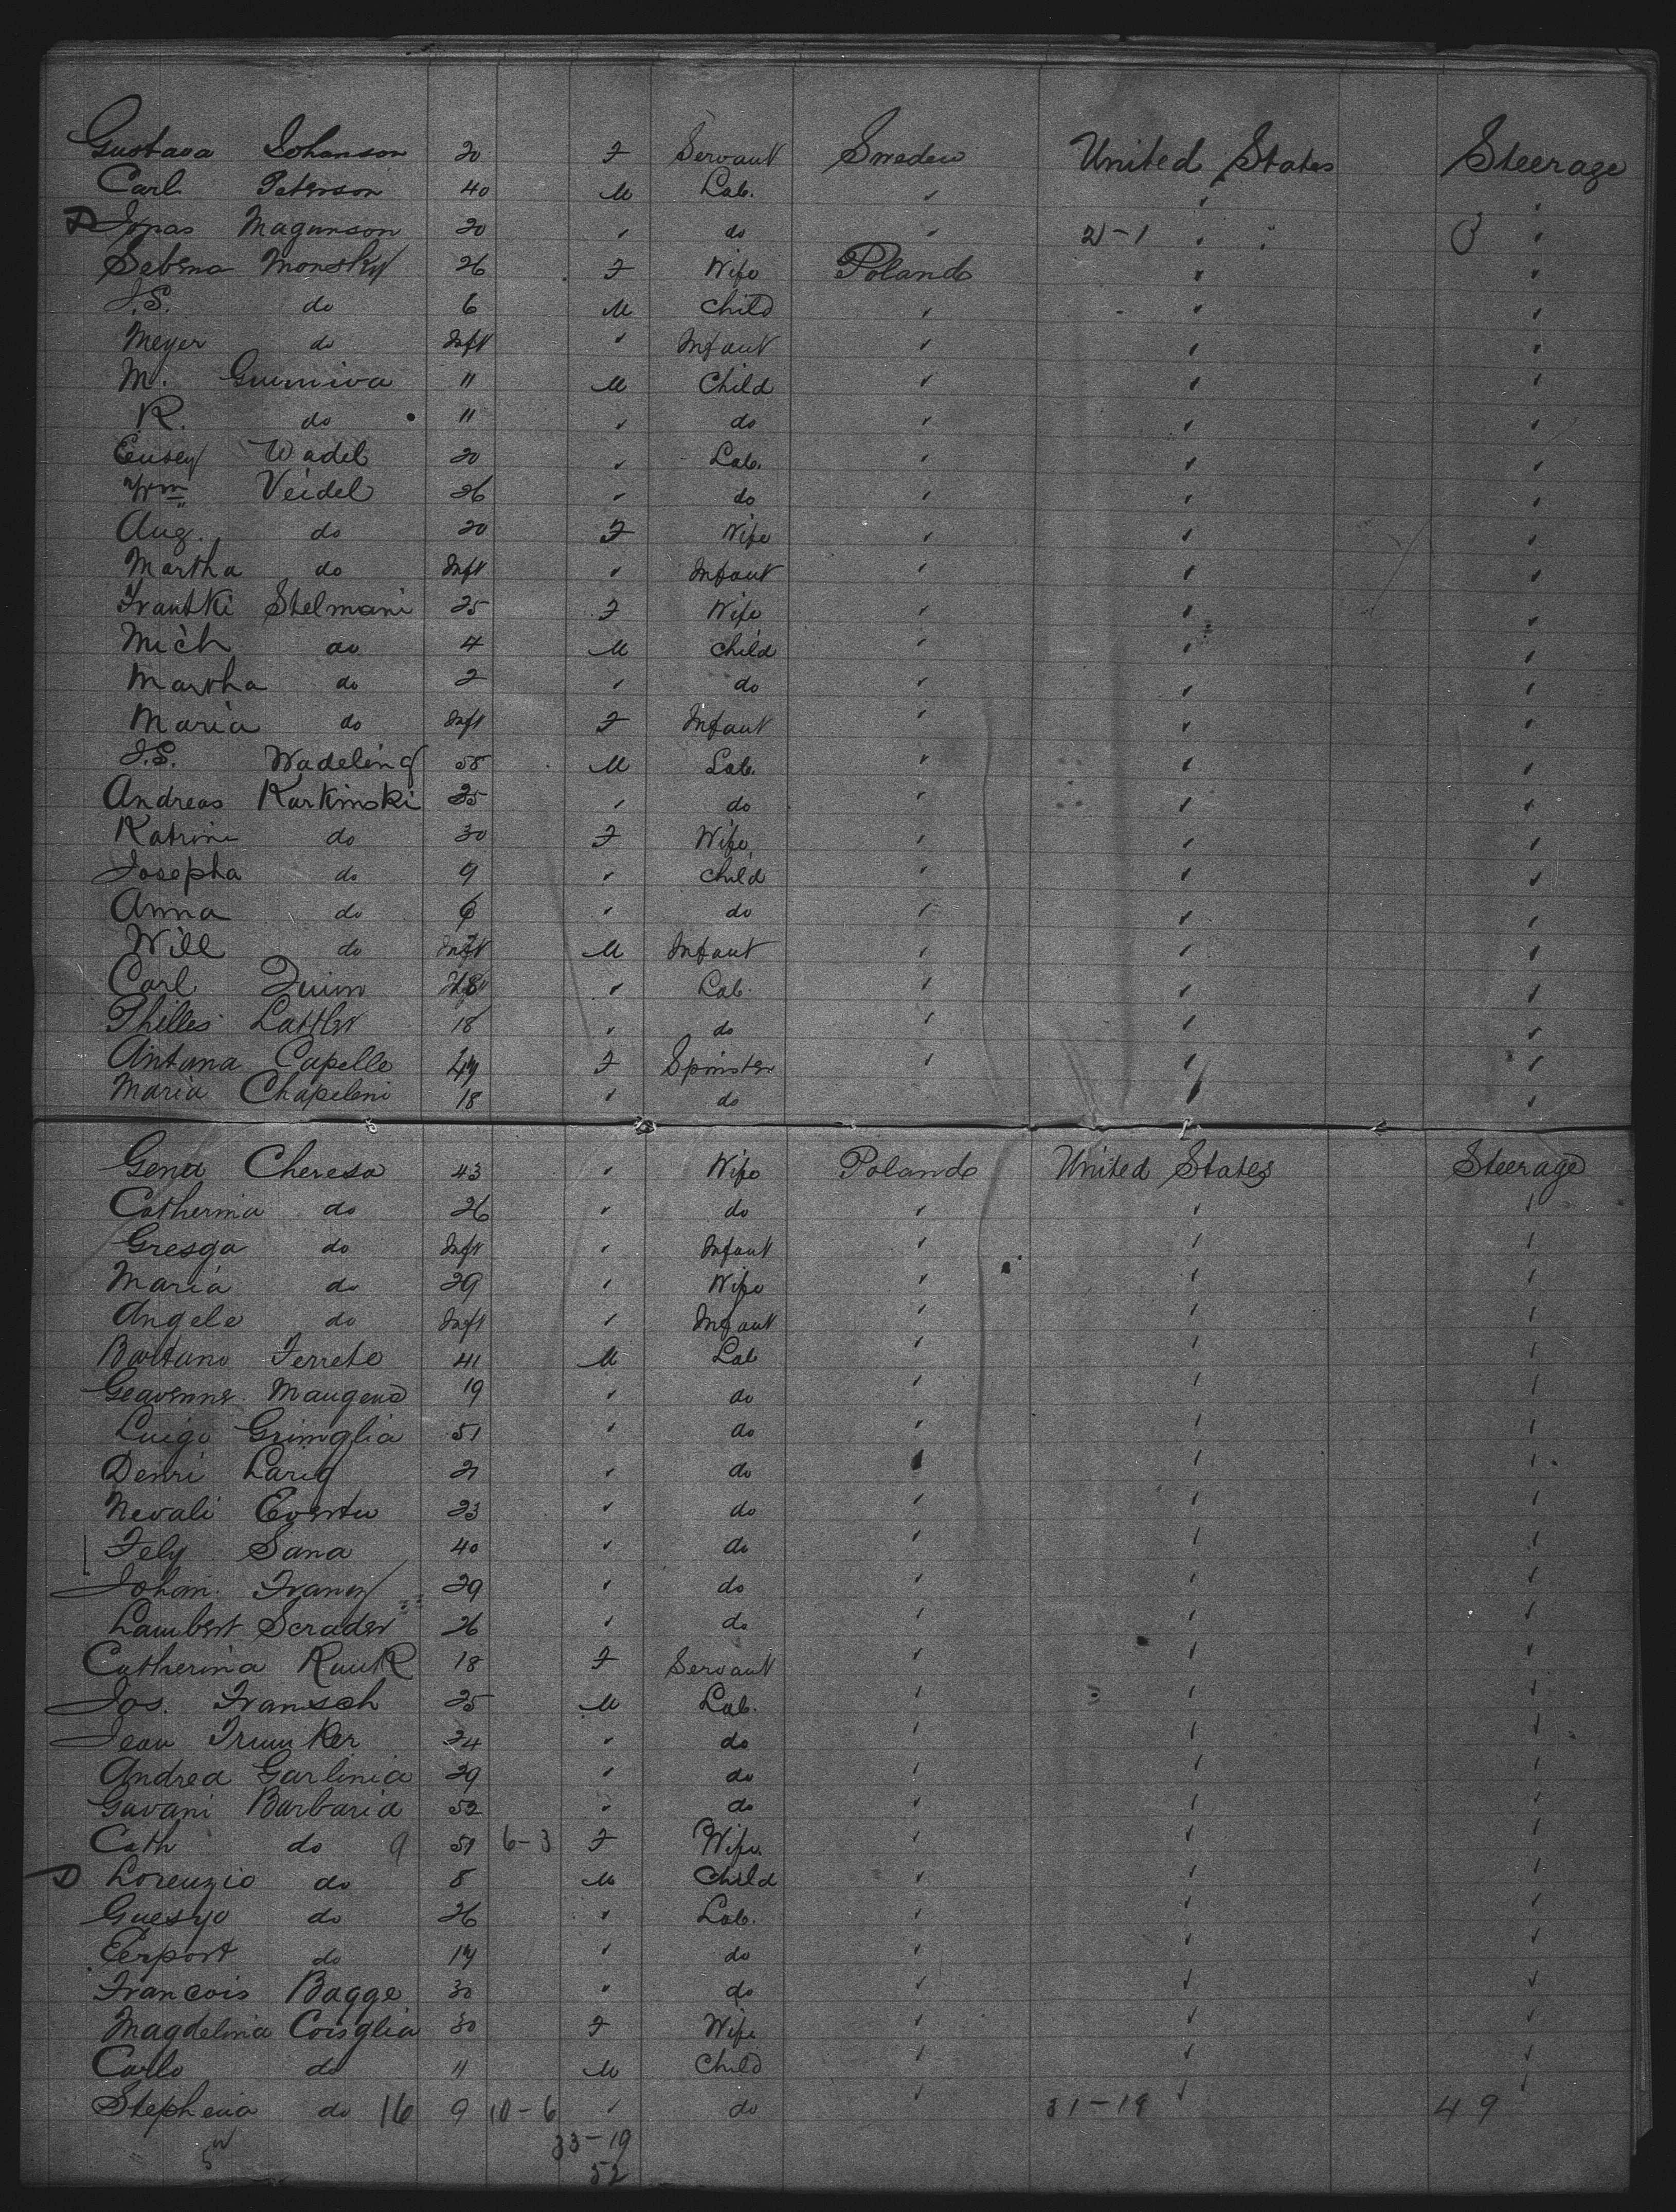 Gustava Johanson 20 F Servant Sweden United States Steerage
Carl Peterson 40 M Lab. " " "
D Jonas Magunson 20 " do " 2-1 " " 3 "
Sebena Monsky 26 F Wife Poland " "
J.S. do 6 M Child " " "
Meyer do Inft " Infant " " "
M. Guiniva 11 M Child " " "
R. do 11 " do " " "
Eusey Wadel 20 " Lab. " " "
Wm Veidel 26 " do " " "
Aug. do 20 F Wife " " "
Martha do Inft " Infant " " "
Frantki Stelmani 25 F Wife " " "
Mich do 4 M Child " " "
Martha do 2 " do " " "
Maria do Inft F Infant " " "
J.S. Wadeling M Lab. " " "
Andreas Karkinski 35 " do " " "
Katrini do 30 F Wife " " "
Josepha do 9 " Child " " "
Anna do 6 " do " " "
Will do Inft M Infant " " "
Carl Quinn " Lab. " " "
Philles Lattler 18 " do " " "
Antona Capelle F Spinster " " "
Maria Chapeleni 18 " do " " "
Gena Cheresa 43 " Wife Poland United States Steerage
Catherina do 26 " do " " "
Gresga do Inft " Infant " " "
Maria do 29 " Wife " " "
Angele do Inft " Infant " " "
Bartano Ferreto 41 M Lab " " "
Geavenne Maugena 19 " do " " "
Luigo Grimglia 51 " do " " "
Denri Larig 21 " do " " "
Nevali Evertu 23 " do " " "
Fely Sana 40 " do " " "
Johan. Frany 29 " do " " "
Lambert Scrader 26 " do " " "
Catherina Rauk 18 F Servant " " "
Jos. Fransch 25 M Lab. " " "
Jean Trumker 24 " do " " "
Andrea Garlinia 29 " do " " "
Gavani Barbaria 52 " do " " "
Cath do 9 51 6-3 F Wife " " "
D Lorenzio do 8 M Child " " "
Guesyo do 26 " Lab. " " "
Eerport do 14 " do " " "
Francois Bagge 30 " do " " "
Magdelina Coisglia 30 F Wife " " "
Carlo do 11 M Child " " "
Stephena do 16 9 10-6 " do " 31-18 " 49 "
33-19
52